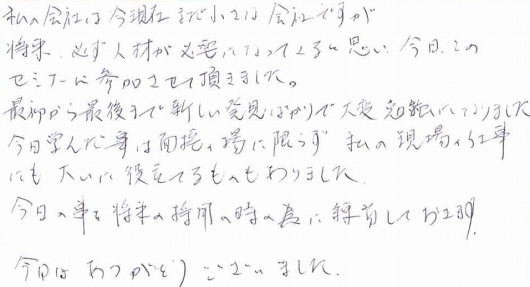 私の会社は今現在まだ小さな会社ですが
将来、必ず人材が必要になってくると思い、今日、この
セミナーに参加させて頂きました。
最初から最後まで新しい発見ばかりで大変勉強になりました
今日学んだ事は面接の場に限らず 私の現場の仕事
にも 大いに役立てるものもありました。
今日の事を将来の採用の時の為に練習しておきます。
今日は ありがとう ございました.